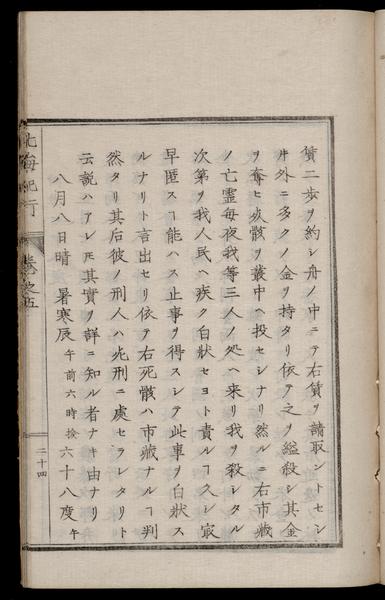 賃二歩ヲ約シ舟ノ中ニテ右賃ヲ請取ントセシ
ニ外ニ多クノ金ヲ持タリ依テ之ヲ縊殺シ其金
ヲ奪ヒ死骸ヲ叢中ヘ投セシナリ然ルニ右市蔵
ノ亡霊毎夜我等三人ノ処ヘ来リ我ヲ殺シタル
次第ヲ我人民ヘ疾ク白状セヨト責ルヿ久シ最
早匿スヿ能ハス止事ヲ得スシテ此事ヲ白状ス
ルナリト言出セリ依テ右死骸ハ市蔵ナルヿ判
然タリ其后彼ノ刑人ハ死刑ニ處セラレタリト
云説ハアレ𪜈其實ヲ詳ニ知ル者ナキ由ナリ
八月八日晴 暑寒辰午前六時六十八度午
北海紀行 巻之五 二十四